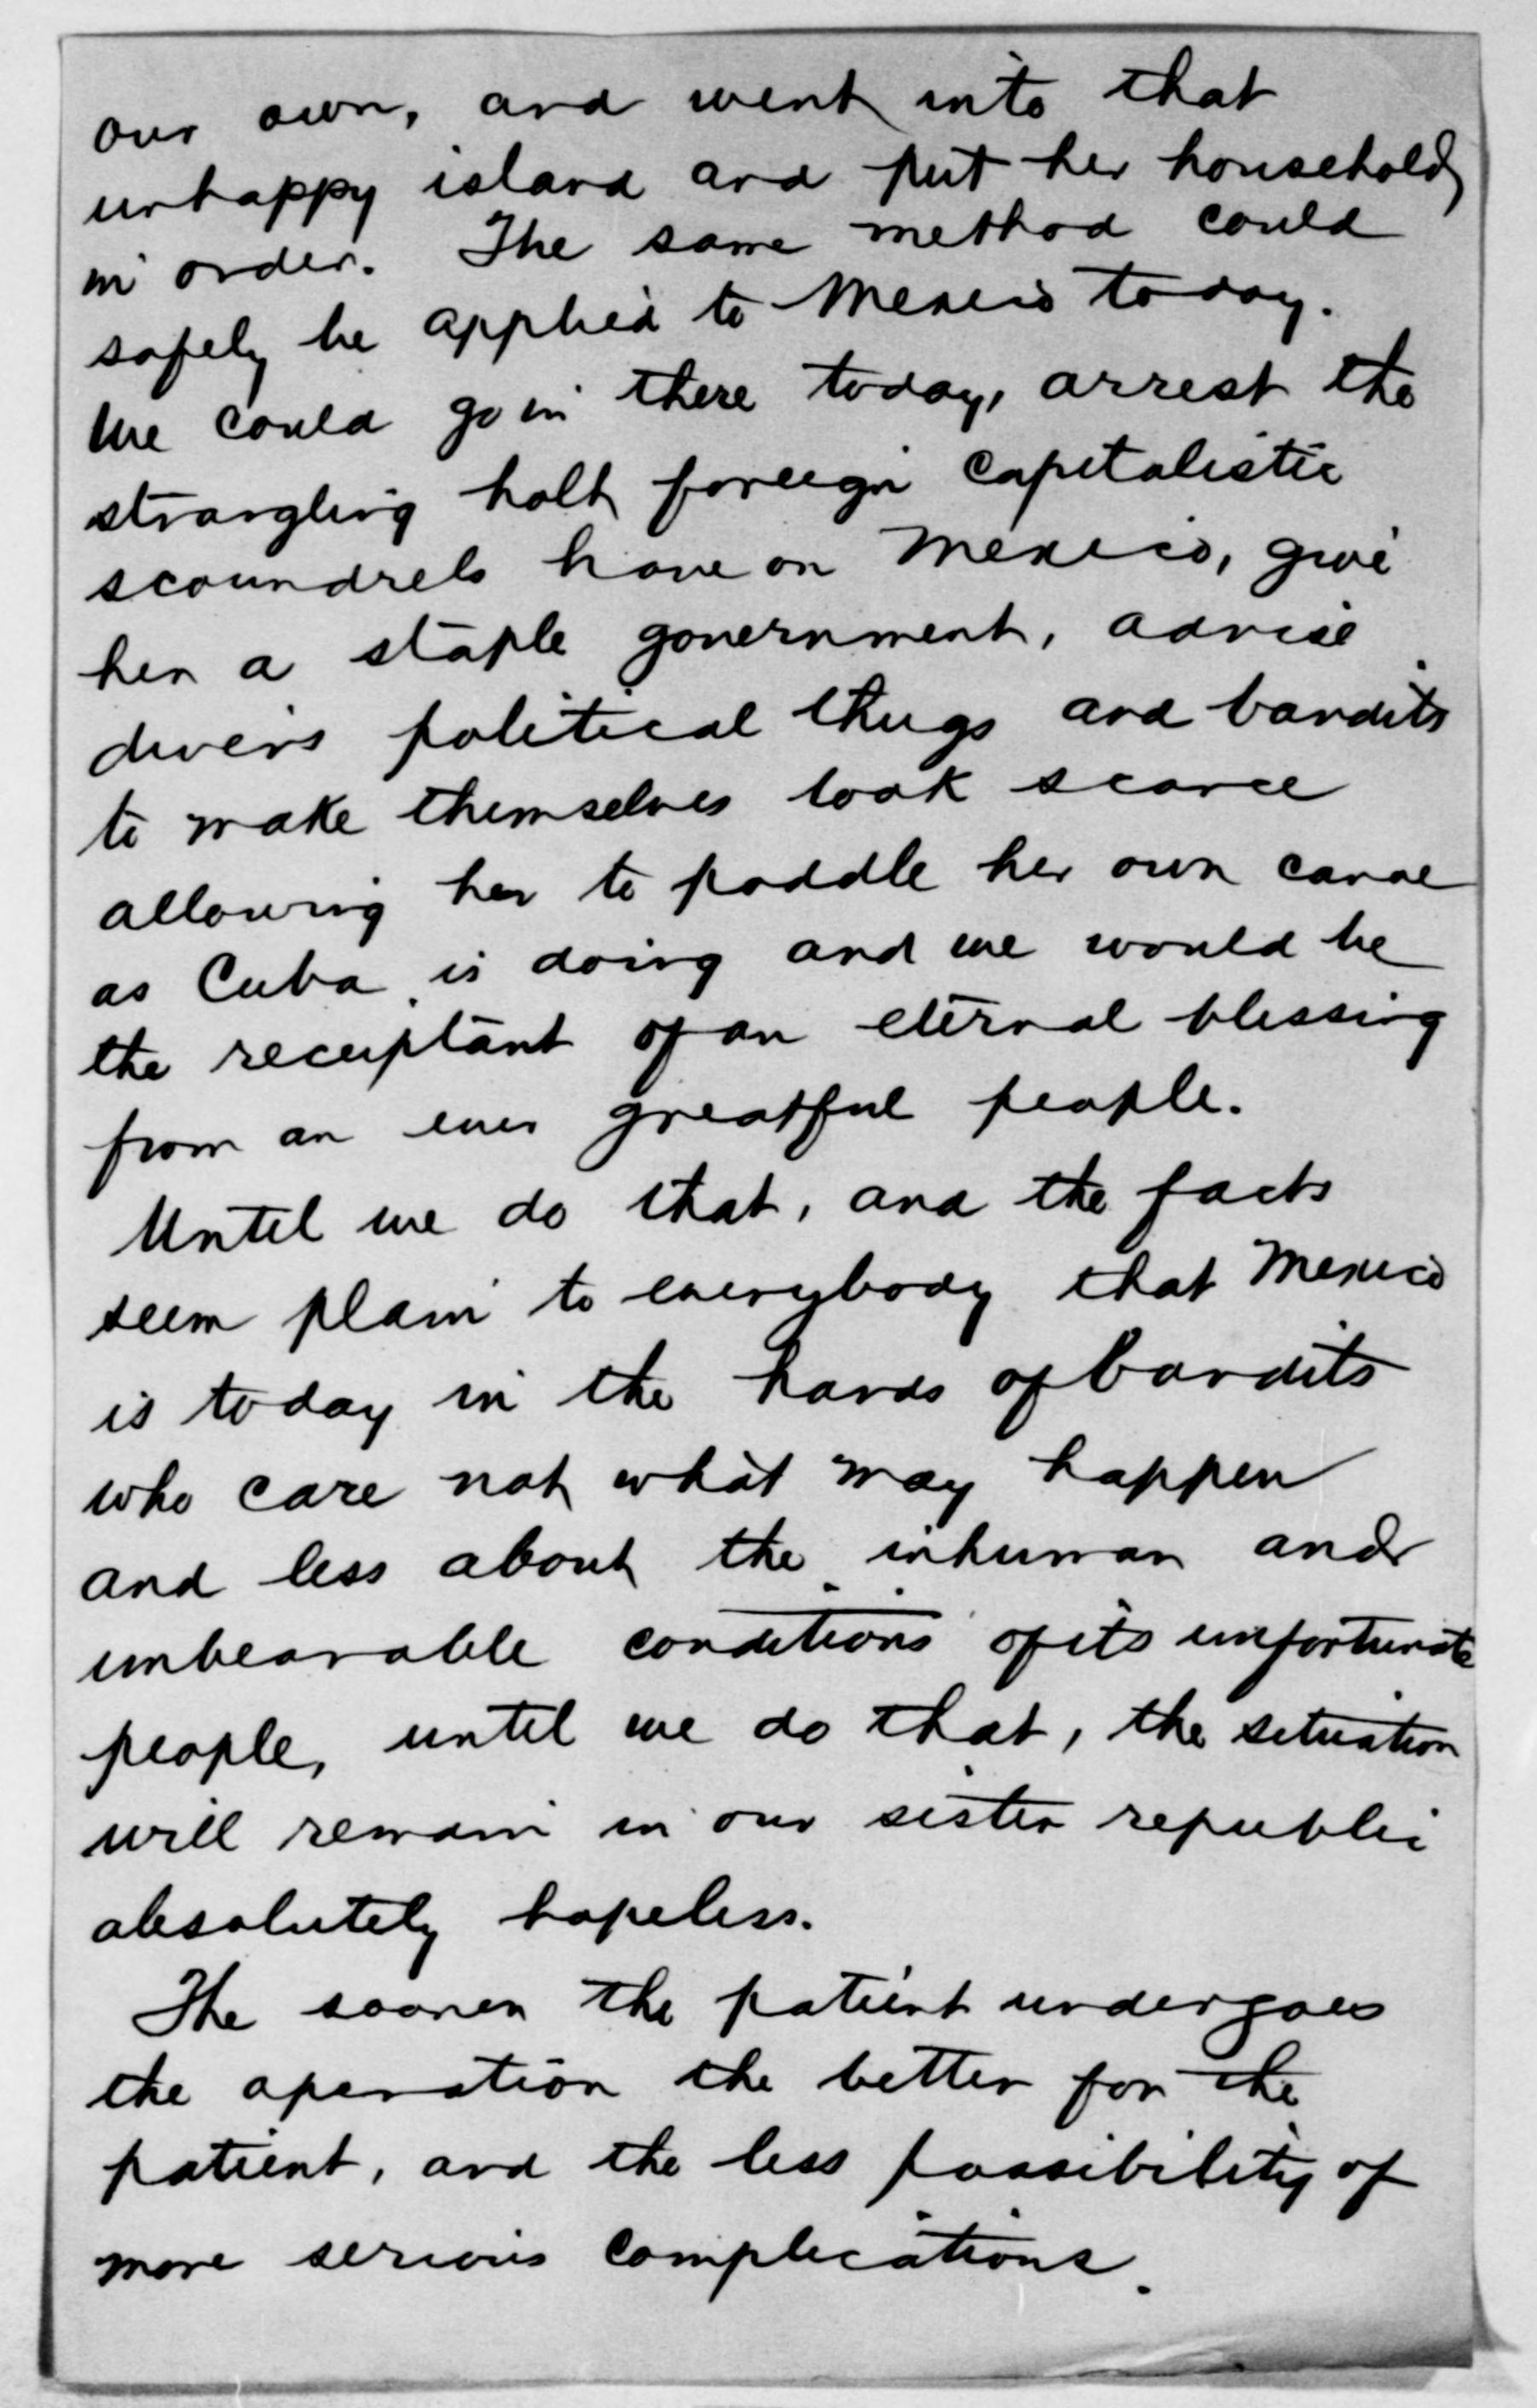 our own, and went into that
unhappy island and put her household
in order. The same method could
safely be applied to Mexico today.
We could go in there today, arrest the
strangling holt foreign capitalistic
scoundrels have on Mexico, give
her a staple government, advise
divers political thugs and bandits
to make themselves look scarce
allowing her to paddle her own canoe
as Cuba is doing and we would be
the receiptant of an eternal blessing
from an ever greatful people.
Until we do that, and the facts
seem plain to everybody that Mexico
is today in the hands of bandits
who care not what may happen
and less about the inhuman and
unbearable conditions of its unfortunate
people, until we do that, the situation
will remain in our sister republic
absolutely hopeless.
The sooner the patient undergoes
the operation the better for the
patient, and the less possibility of
more serious complications.